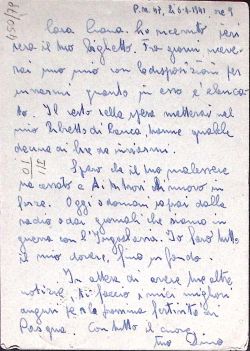 P.M. 47, li 6.4.1941, ore 9
Cara Liana, ho ricevuto ieri
sera il tuo biglietto. Fra giorni riceve-
rai uno mio con le disposizioni per
inviarmi quanto in esso è elenca-
to. Il resto della spesa metterai nel
mio libretto di Banca, tranne qualche
decina di lire da inviarmi.
Spero che il tuo malessere
sia cessato e di nuovo in
forze. Oggi o domani saprai dalla
radio o dai giornali che siamo in
guerra con l'Jugoslavia. Io farò tutto
il mio dovere, fino in fondo.
In attesa di avere tue altre
notizie, ti faccio i miei migliori
auguri per la prossima festività di
Pasqua. Con tutto il cuore
tuo Dino